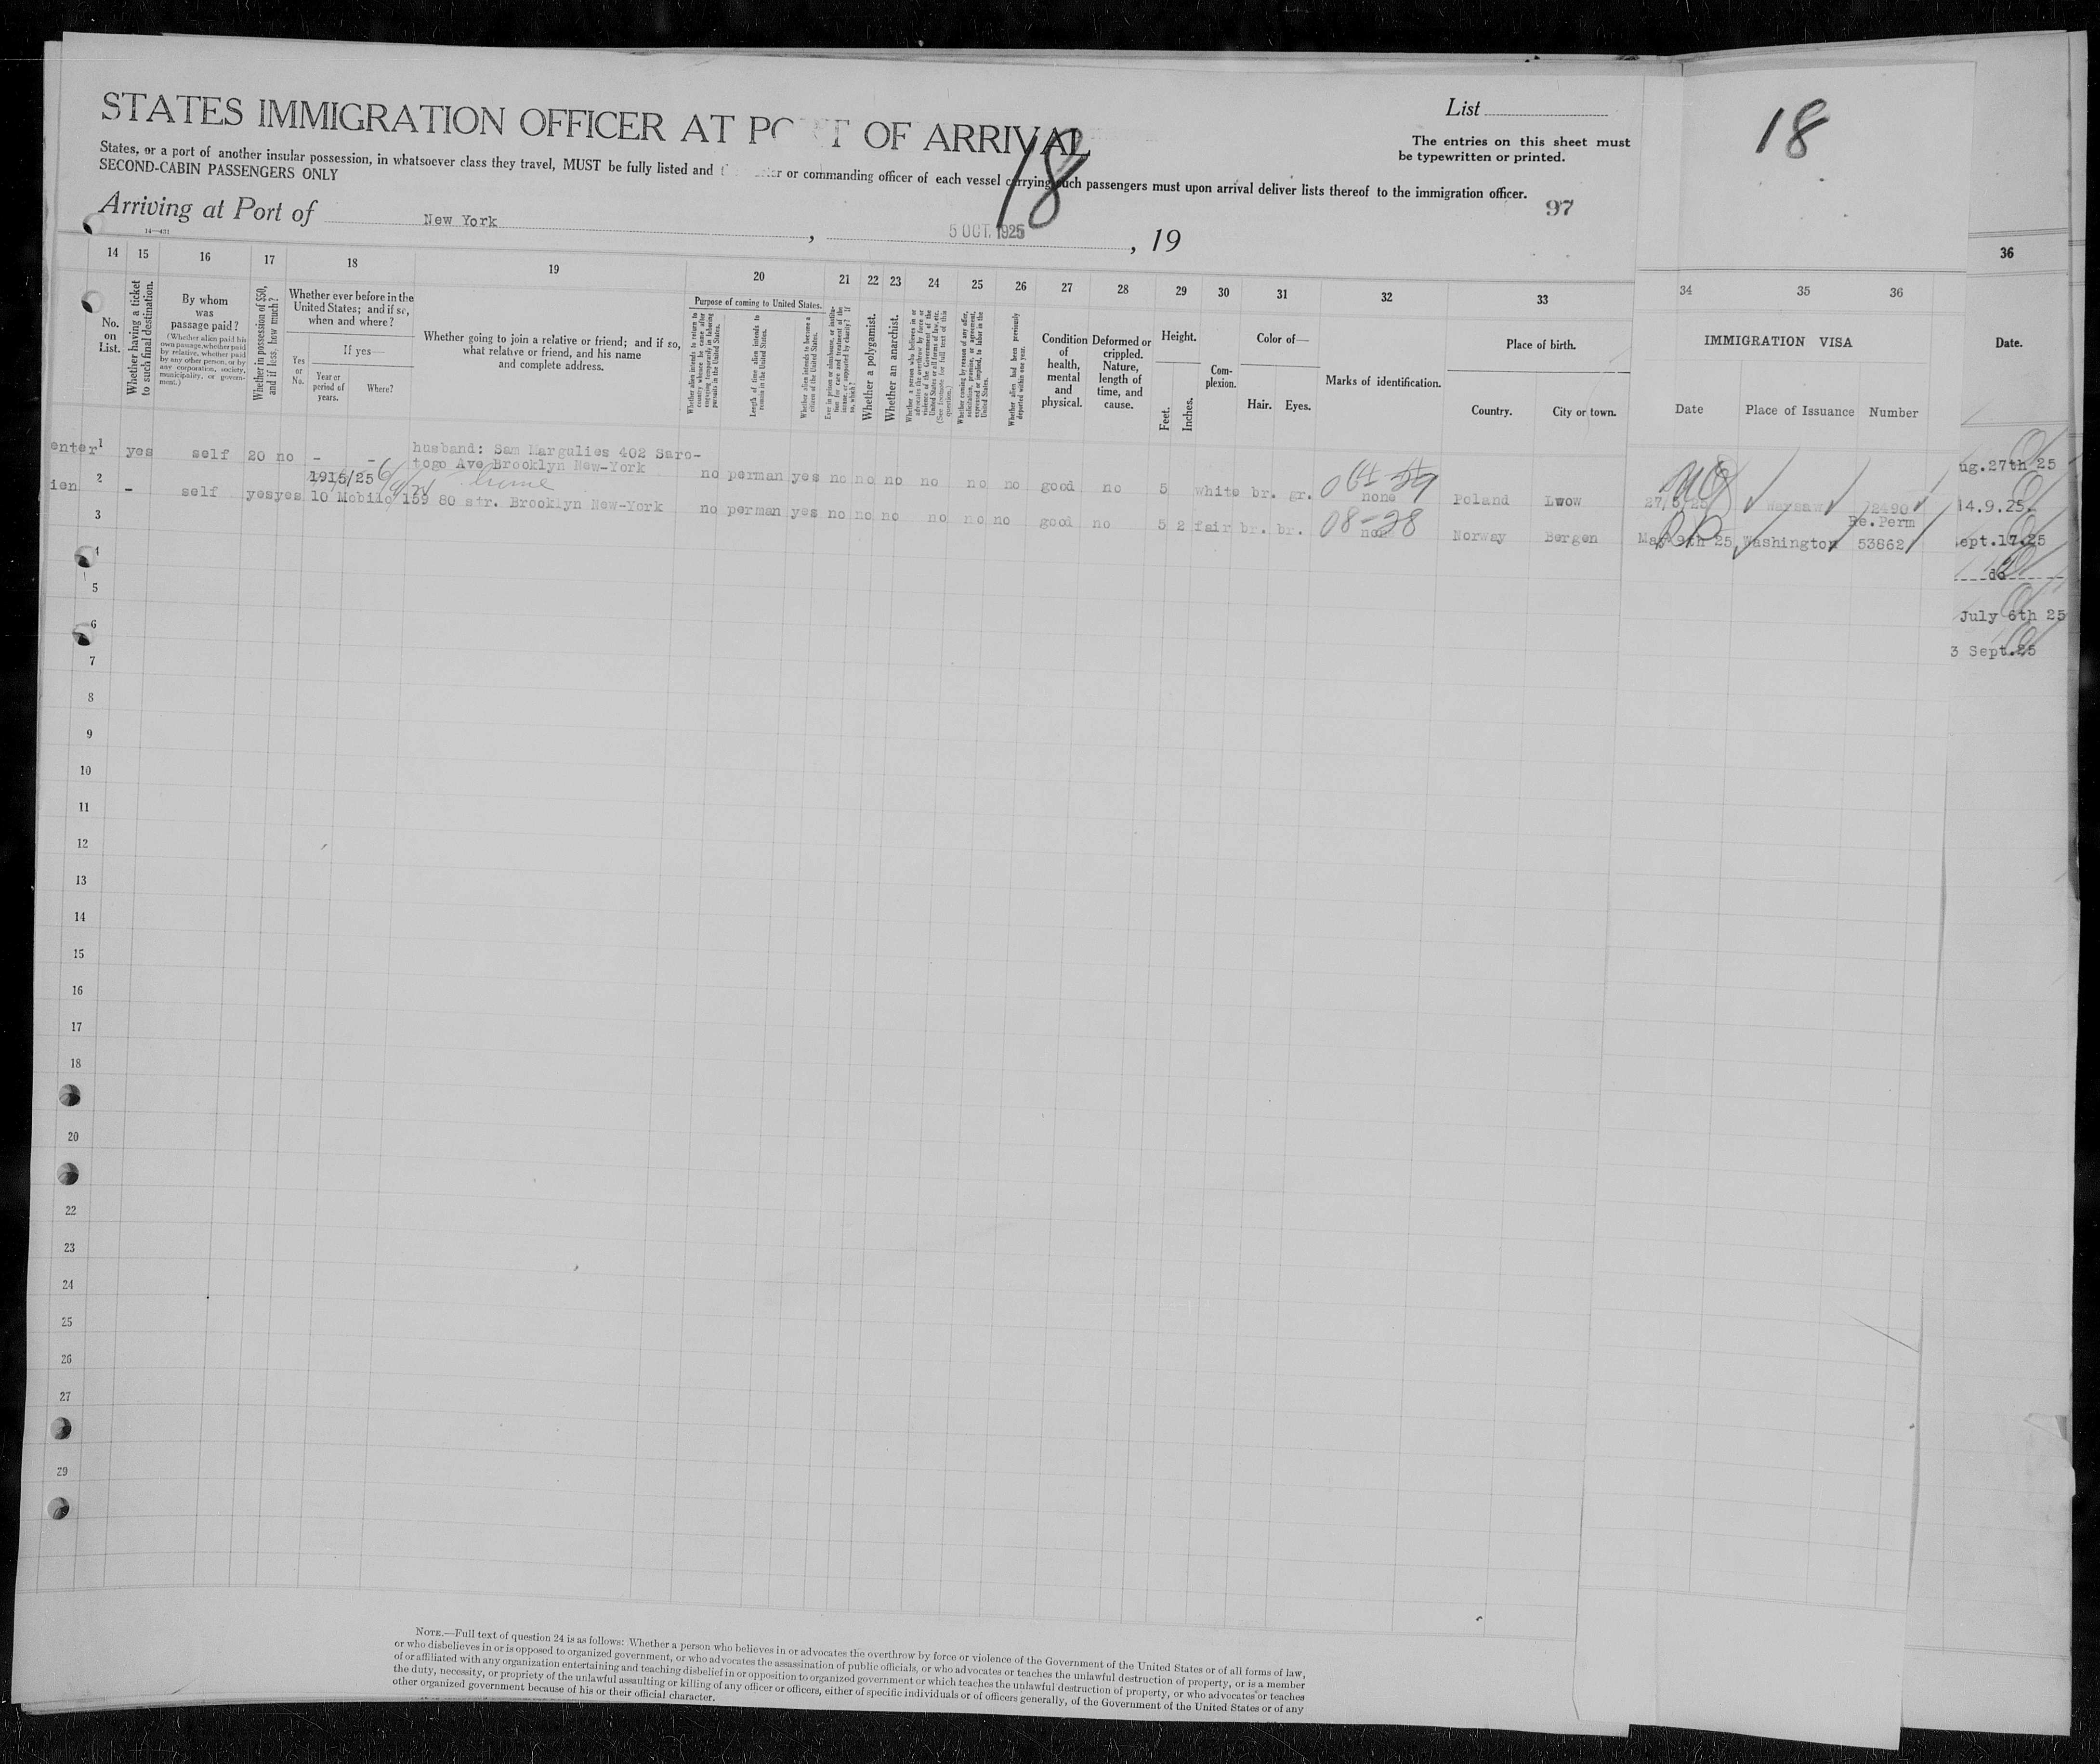 STATES IMMIGRATION OFFICER AT PORT OF ARRIVAL
List
18
The entries on this sheet must
be typewritten or printed.
States, or a port of another insular possession, in whatsoever class they travel, MUST be fully listed and
or commanding officer of each vessel carrying such passengers must upon arrival deliver lists thereof to the immigration officer.
SECOND-CABIN PASSENGERS ONLY
18
97
Arriving at Port of New York, 5 OCT. 1925, 19
14—431
14 15 16 17 18 19 20 21 22 23 24 25 26 27 28 29 30 31 32 33 34 35 36 36
No. on List.
Whether having a ticket to such final destination.
By whom was passage paid?
(Whether alien paid his own passage, whether paid by relative, whether paid by any other person, or by any corporation, society, municipality, or government.)
Whether in possession of $50, and if less, how much?
Whether ever before in the United States; and if so, when and where?
Yes or No.
If yes—
Year or period of years.
Where?
Whether going to join a relative or friend; and if so, what relative or friend, and his name and complete address.
Purpose of coming to United States.
Whether alien intends to return to country whence he came after engaging temporarily in laboring pursuits in the United States.
Length of time alien intends to remain in the United States.
Whether alien intends to become a citizen of the United States.
Ever in prison or almshouse, or institution for care and treatment of the insane, or supported by charity? If so, which?
Whether a polygamist.
Whether an anarchist.
Whether a person who believes in or advocates the overthrow by force or violence of the Government of the United States or all forms of law, etc. (See footnote for full text of this question.)
Whether coming by reason of any offer, solicitation, promise, or agreement, expressed or implied, to labor in the United States.
Whether alien had been previously deported within one year.
Condition of health, mental and physical.
Deformed or crippled. Nature, length of time, and cause.
Height.
Feet.
Inches.
Complexion.
Color of—
Hair.
Eyes.
Marks of identification.
Place of birth.
Country.
City or town.
IMMIGRATION VISA
Date
Place of Issuance
Number
Date.
enter 1 yes self 20 no - - husband: Sam Margulies 402 Saro-
togo Ave Brooklyn New-York no perman yes no no no no no no good no 5 white br. gr. none Poland Lwow 27/8/25 Warsaw 72490
ug.27th 25
1915/25
ien 2 - self yes yes 10 Mobile 159 80 str. Brooklyn New-York no perman yes no no no no no no good no 5 2 fair br. br. 08-28 Norway Bergen May 9th 25 Washington Re.Perm 53862
14.9.25
3
ept.17.25
4
do
5
July 6th 25
6
3 Sept.25
7
8
9
10
11
12
13
14
15
16
17
18
20
22
23
24
25
26
27
29
NOTE.—Full text of question 24 is as follows: Whether a person who believes in or advocates the overthrow by force or violence of the Government of the United States or of all forms of law,
or who disbelieves in or is opposed to organized government, or who advocates the assassination of public officials, or who advocates or teaches the unlawful destruction of property, or is a member
of or affiliated with any organization entertaining and teaching disbelief in or opposition to organized government or which teaches the unlawful destruction of property, or who advocates or teaches
the duty, necessity, or propriety of the unlawful assaulting or killing of any officer or officers, either of specific individuals or of officers generally, of the Government of the United States or of any
other organized government because of his or their official character.